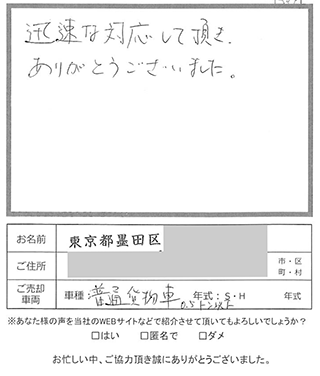 迅速な対応して頂き、
ありがとうございました。
お名前
東京都墨田区
ご住所
市・区
町・村
ご売却
車両
車種: 普通貨物車 0.5トン以下 年式: S・H 年式
※あなた様の声を当社のWEBサイトなどで紹介させて頂いてもよろしいでしょうか?
□はい □匿名で □ダメ
お忙しい中、ご協力頂き誠にありがとうございました。